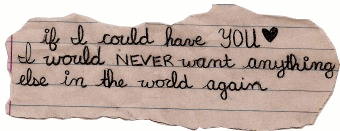 if I could have YOU♥
I would NEVER want anything
else in the world again